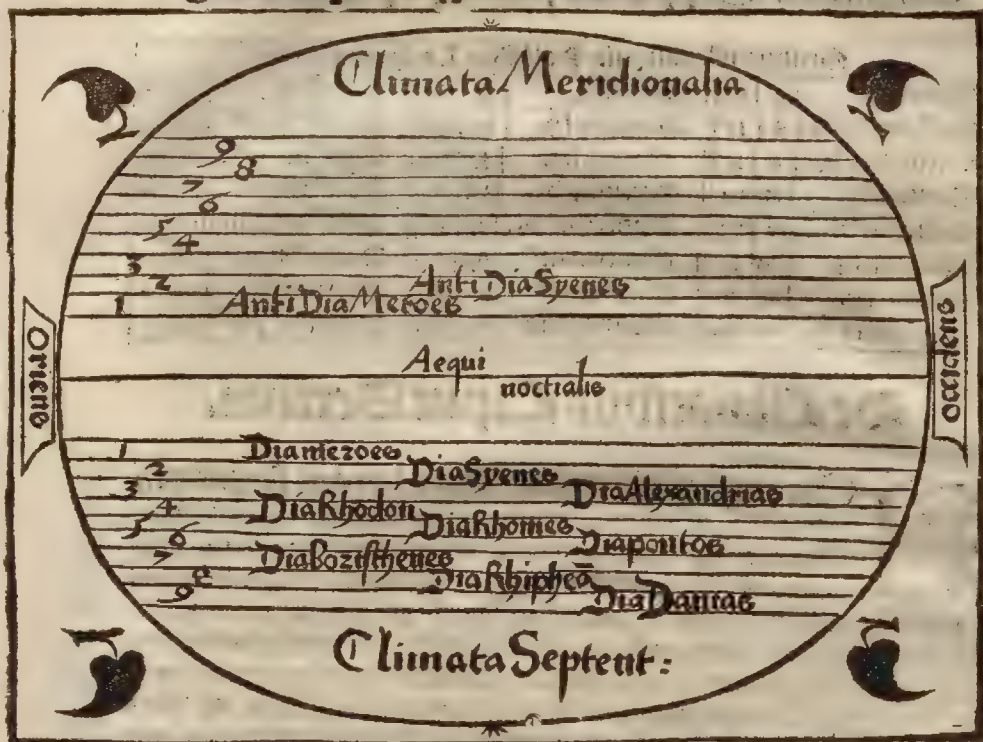 Climata Meridionalia
9
8
7
6
5
4
3
2 AntiDiaSyenes
1 AntiDiaMeroes
Oriens
Aequi
noctialis
occidens
1 Diameroes
2 DiaSyenes
3 DiaAlexandrias
4 DiaRhodon
5 DiaRhomes
6 Diapontos
7 Diaboristhenes
8 DiaRhipheā
9 DiaDanias
Climata Septent: